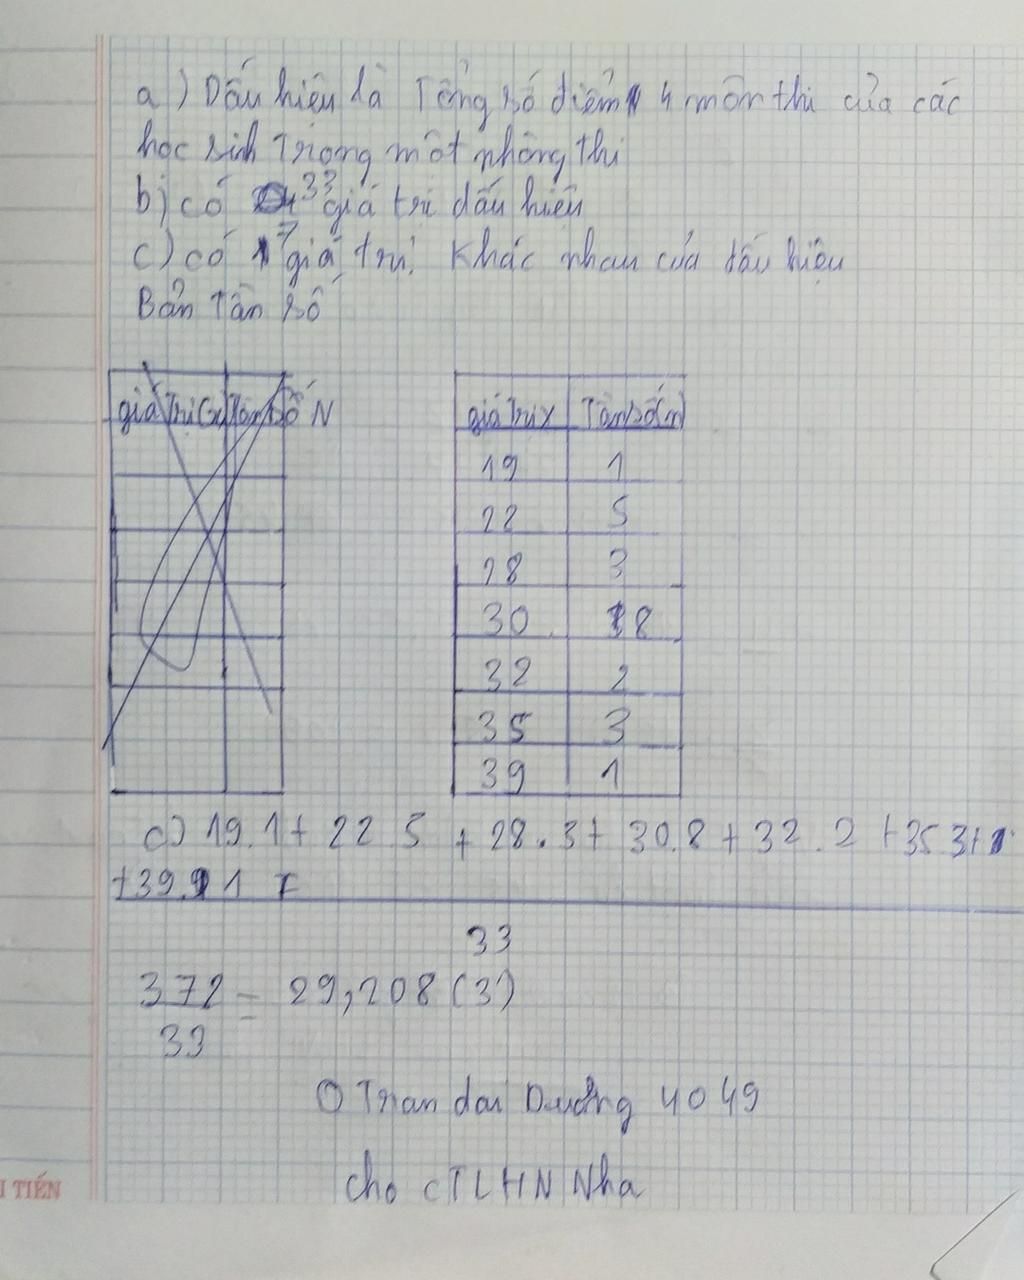 a) Dấu hiệu là Tổng số điểm 4 môn thi của các
học sinh Trong một phòng thi
b) có 33 giá trị dấu hiệu
c) có 7 giá trị khác nhau của dấu hiệu
Bản Tần số
giá Trị (x) Tần số N
giá Trị x Tần số (n)
19 1
22 5
28 3
30 8
32 2
35 3
39 1
c) 19.1 + 22 5 + 28.3 + 30.8 + 32.2 + 35 3 +
+39.1 =
33
372 = 29,208 (3)
33
Tran dai Dương 4049
cho cTLHN Nha
I TIẾN